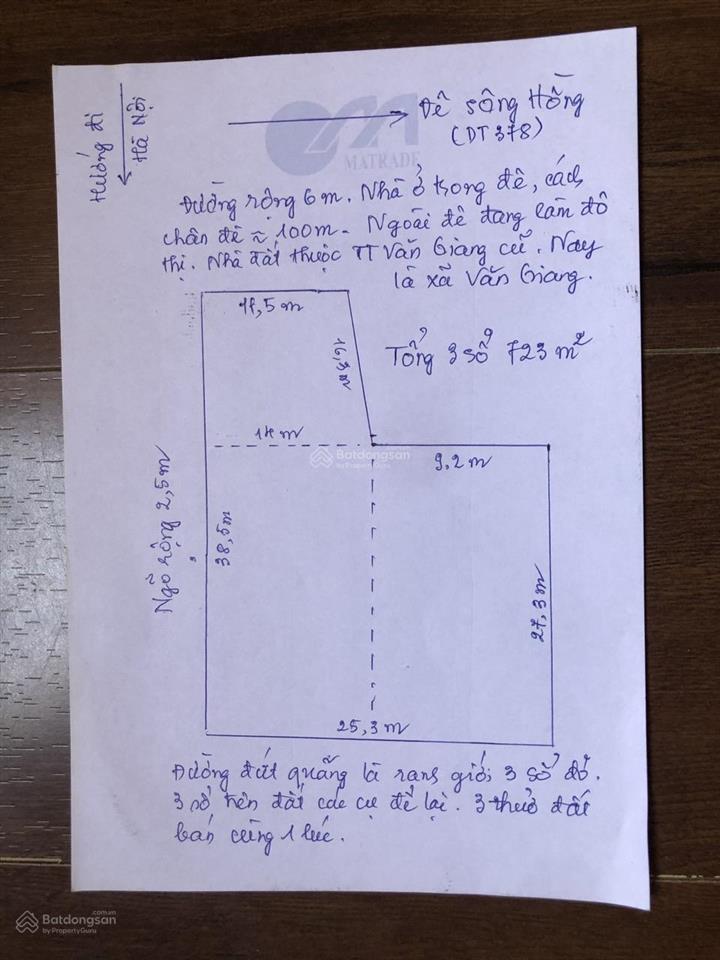 Hướng đi
Hà Nội
Đê sông Hồng
(DT 378)
MATRADE
Đường rộng 6m. Nhà ở trong đê, cách
chân đê ≈ 100m - Ngoài đê đang làm đô
thị. Nhà đất thuộc TT Văn Giang cũ. Nay
là xã Văn Giang.
11,5 m
16,5 m
Tổng 3 sổ 723 m²
14 m
9,2 m
Batdongsan
by PropertyGuru
Ngõ rộng 2,5m
38,5m
27,3 m
25,3 m
Đường đứt quãng là ranh giới 3 sổ đỏ.
3 sổ trên đất các cụ để lại. 3 thửa đất
bán cùng 1 lúc.
Batdongsan.com.vn
by PropertyGuru